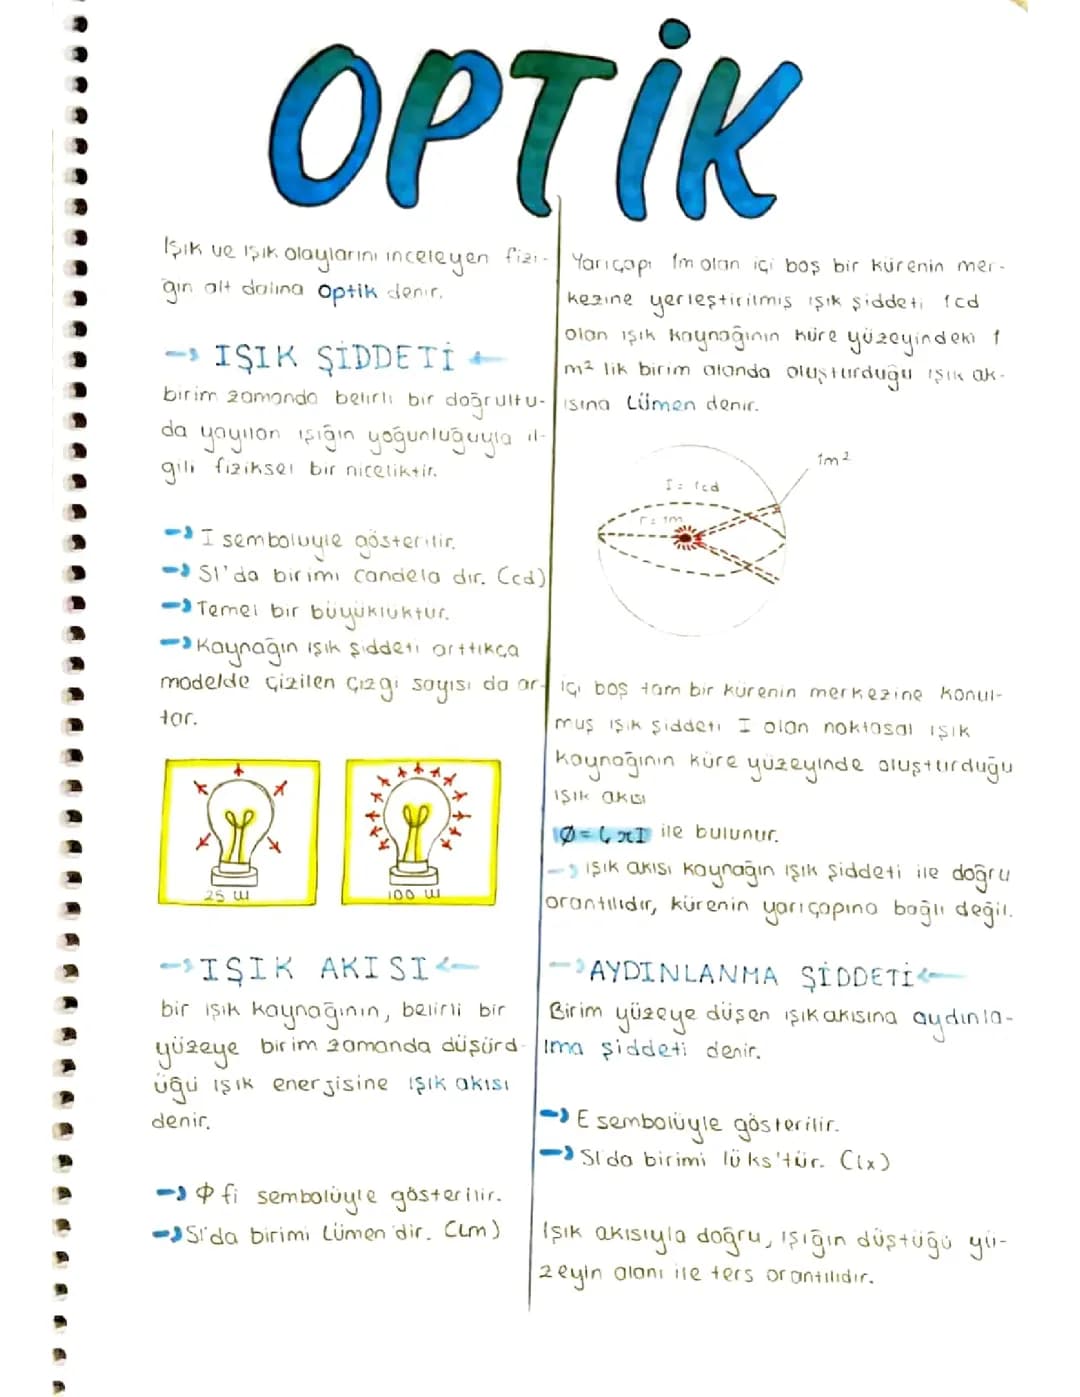 OPTİK
Işık ve ışık olaylarını inceleyen fizi-
ğin alt dalına optik denir.
→ IŞIK ŞİDDETİ ←
birim zamanda belirli bir doğrultu-
da yayılan ışığın yoğunluğuyla il-
gili fiziksel bir niceliktir.
→ I sembolüyle gösterilir.
→ SI'da birimi candela dır. (cd)
→ Temel bir büyüklüktür.
→ Kaynağın ışık şiddeti arttıkça
modelde çizilen çizgi sayısı da ar-
tar.
25 W
100 W
→ IŞIK AKISI ←
bir ışık kaynağının, belirli bir
yüzeye birim zamanda düşürd-
üğü ışık enerjisine ışık akısı
denir.
→ Φ fi sembolüyle gösterilir.
→ SI'da birimi Lümen'dir. (Lm)
Yarıçapı 1m olan içi boş bir kürenin mer-
kezine yerleştirilmiş ışık şiddeti 1cd
olan ışık kaynağının küre yüzeyindeki 1
m² lik birim alanda oluşturduğu ışık ak-
ısına Lümen denir.
1m²
I = 1cd
r = 1m
içi boş tam bir kürenin merkezine konul-
muş ışık şiddeti I olan noktasal ışık
kaynağının küre yüzeyinde oluşturduğu
ışık akısı
Ø = 4πI ile bulunur.
→ ışık akısı kaynağın ışık şiddeti ile doğru
orantılıdır, kürenin yarıçapına bağlı değil.
→ AYDINLANMA ŞİDDETİ ←
Birim yüzeye düşen ışık akısına aydınla-
lma şiddeti denir.
→ E sembolüyle gösterilir.
→ SI'da birimi lüks'tür. (lx)
Işık akısıyla doğru, ışığın düştüğü yü-
zeyin alanı ile ters orantılıdır.